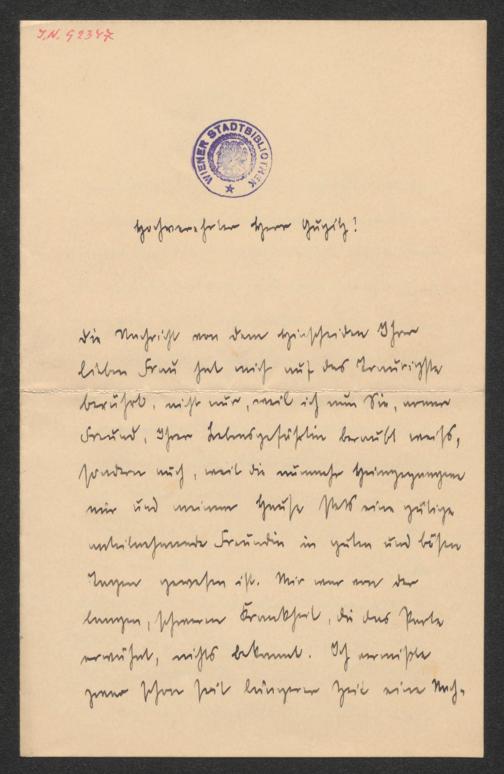 I.N. 92347
WIENER STADTBIBLIOTHEK
Hochverehrter Herr Gugitz!
Die Nachricht von dem Hinscheiden Ihrer
lieben Frau hat mich auf das Traurigste
berührt, nicht nur, weil ich nun Sie, armer
Freund, Ihrer Lebensgefährtin beraubt weiss,
sondern auch, weil die nunmehr Heimgegangene
mir und meinem Hause stets eine gütige
anteilnehmende Freundin in guten und bösen
Tagen gewesen ist. Mir war von der
langen, schweren Krankheit, die das Parte
erwähnt, nichts bekannt. Ich vermisste
zwar schon seit längerer Zeit eine Nach-